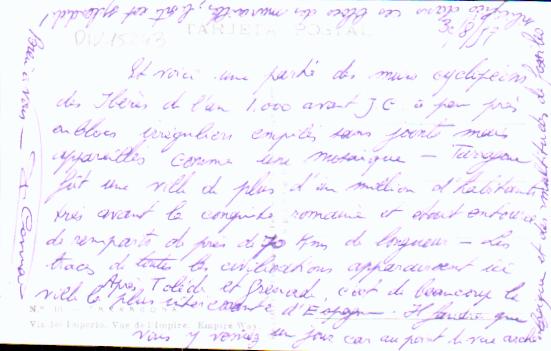 DIV-15243
TARJETA POSTAL
Et voici une partie des murs cyclopéens
des Ibères de l'an 1.000 avant J C à peu près
en blocs irréguliers empilés sans joints mais
appareillés comme une mosaïque — Tarragone
fût une ville de plus d'un million d'habitants
très avant la conquête romaine et était entourée
de remparts de près de 70 Kms de longueur — Les
traces de toutes les civilisations apparaissent ici
Après Tolède et Grenade, c'est de beaucoup la
ville la plus intéressante d'Espagne. Il faudra que
vous y veniez un jour car au point de vue arché
Via del Imperio. Vue de l'Empire. Empire Way.
ces blocs des murailles, tout est splendide!
Bien à vous —